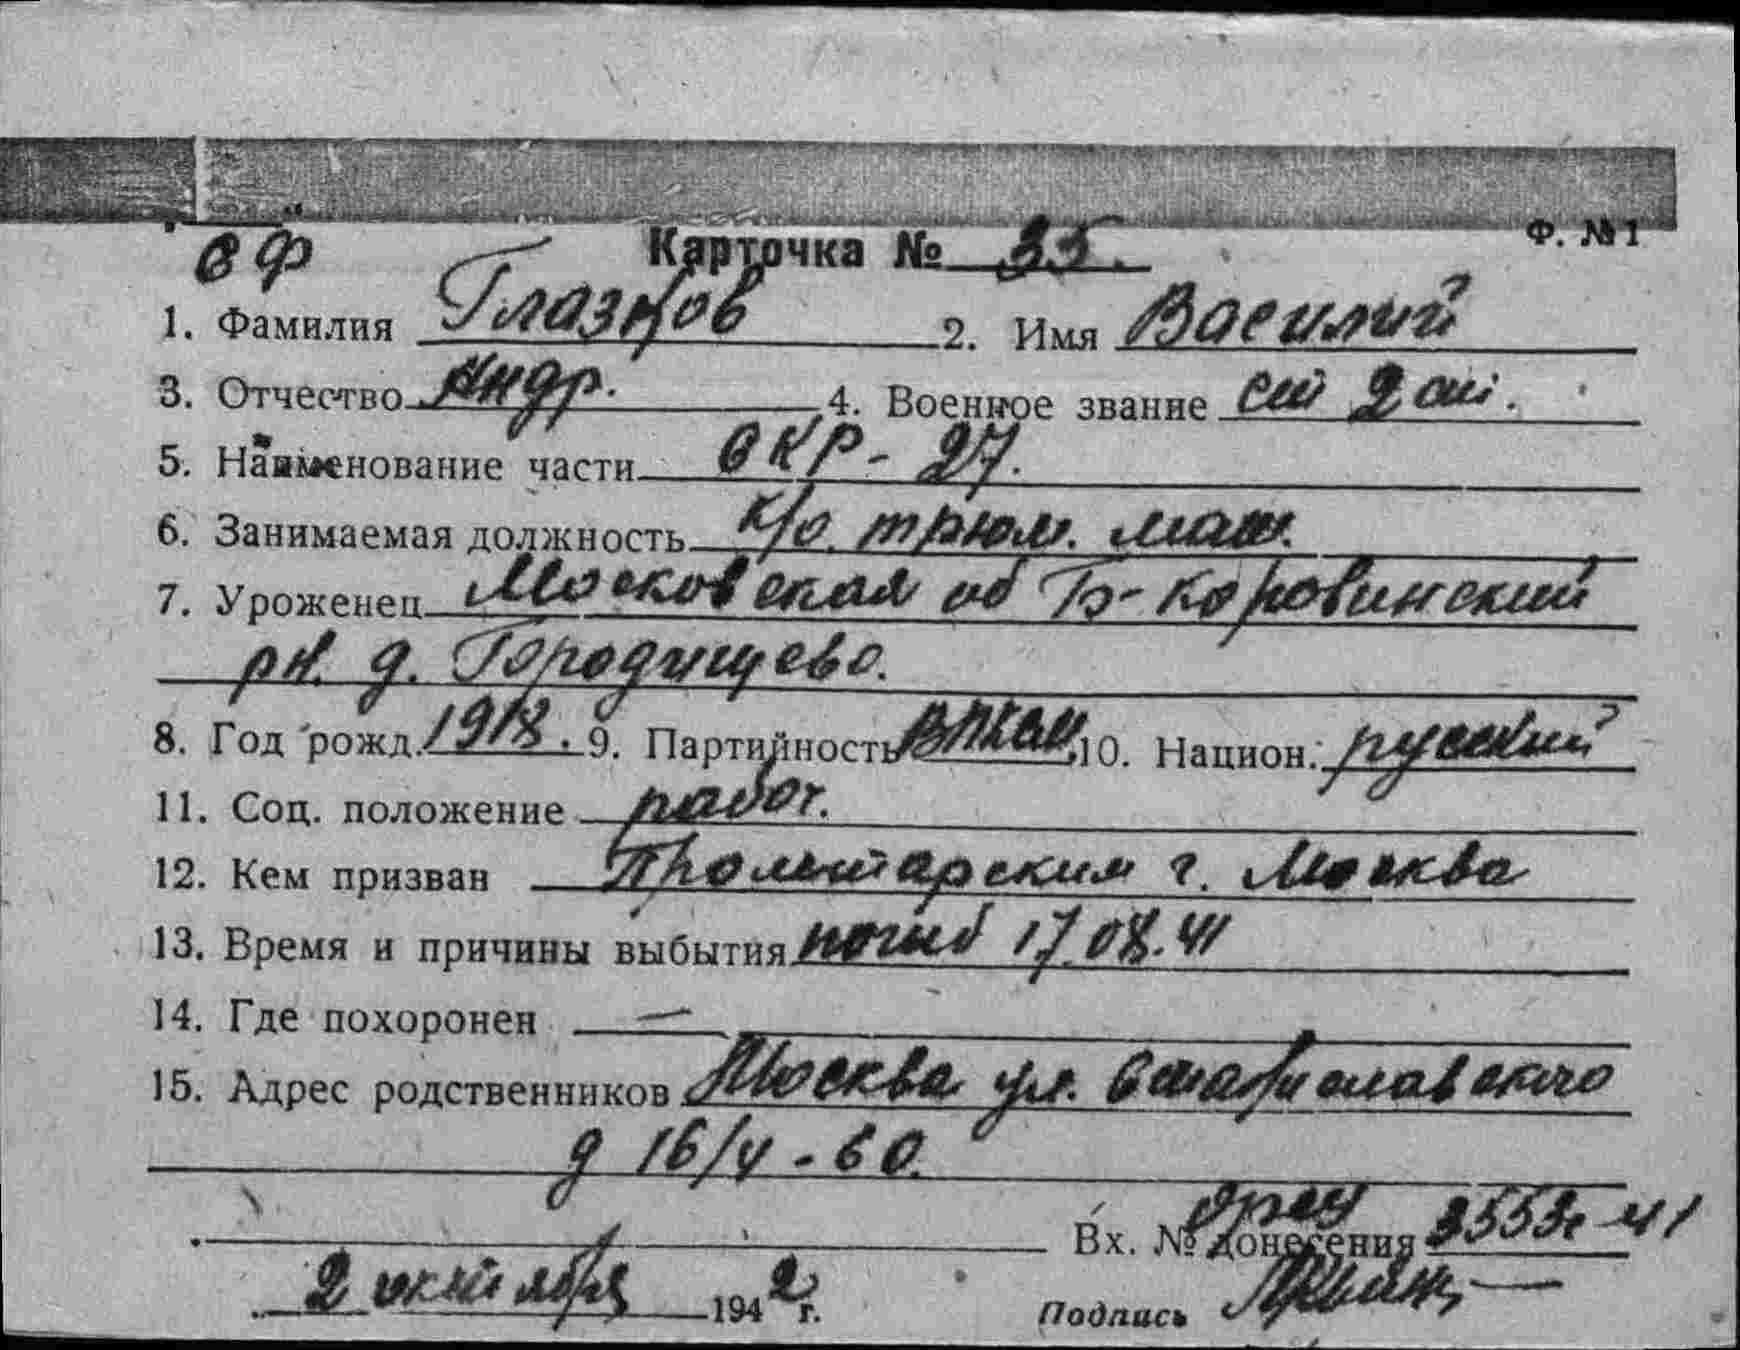 Ф. №1
СФ Карточка № 35.
1. Фамилия Глазков 2. Имя Василий
3. Отчество Андр. 4. Военное звание 2 ст.
5. Наименование части СКР-27.
6. Занимаемая должность к/о. трюм. маш.
7. Уроженец Московская об Б-Коровинский
рн. д. Городищево.
8. Год рожд. 1918. 9. Партийность 10. Национ. русский
11. Соц. положение работ.
12. Кем призван Пролетарским г. Москва
13. Время и причины выбытия погиб 17.08.41
14. Где похоронен —
15. Адрес родственников Москва ул.
д 16/4-60.
Вх. № донесения
2 октября 1942 г. Подпись